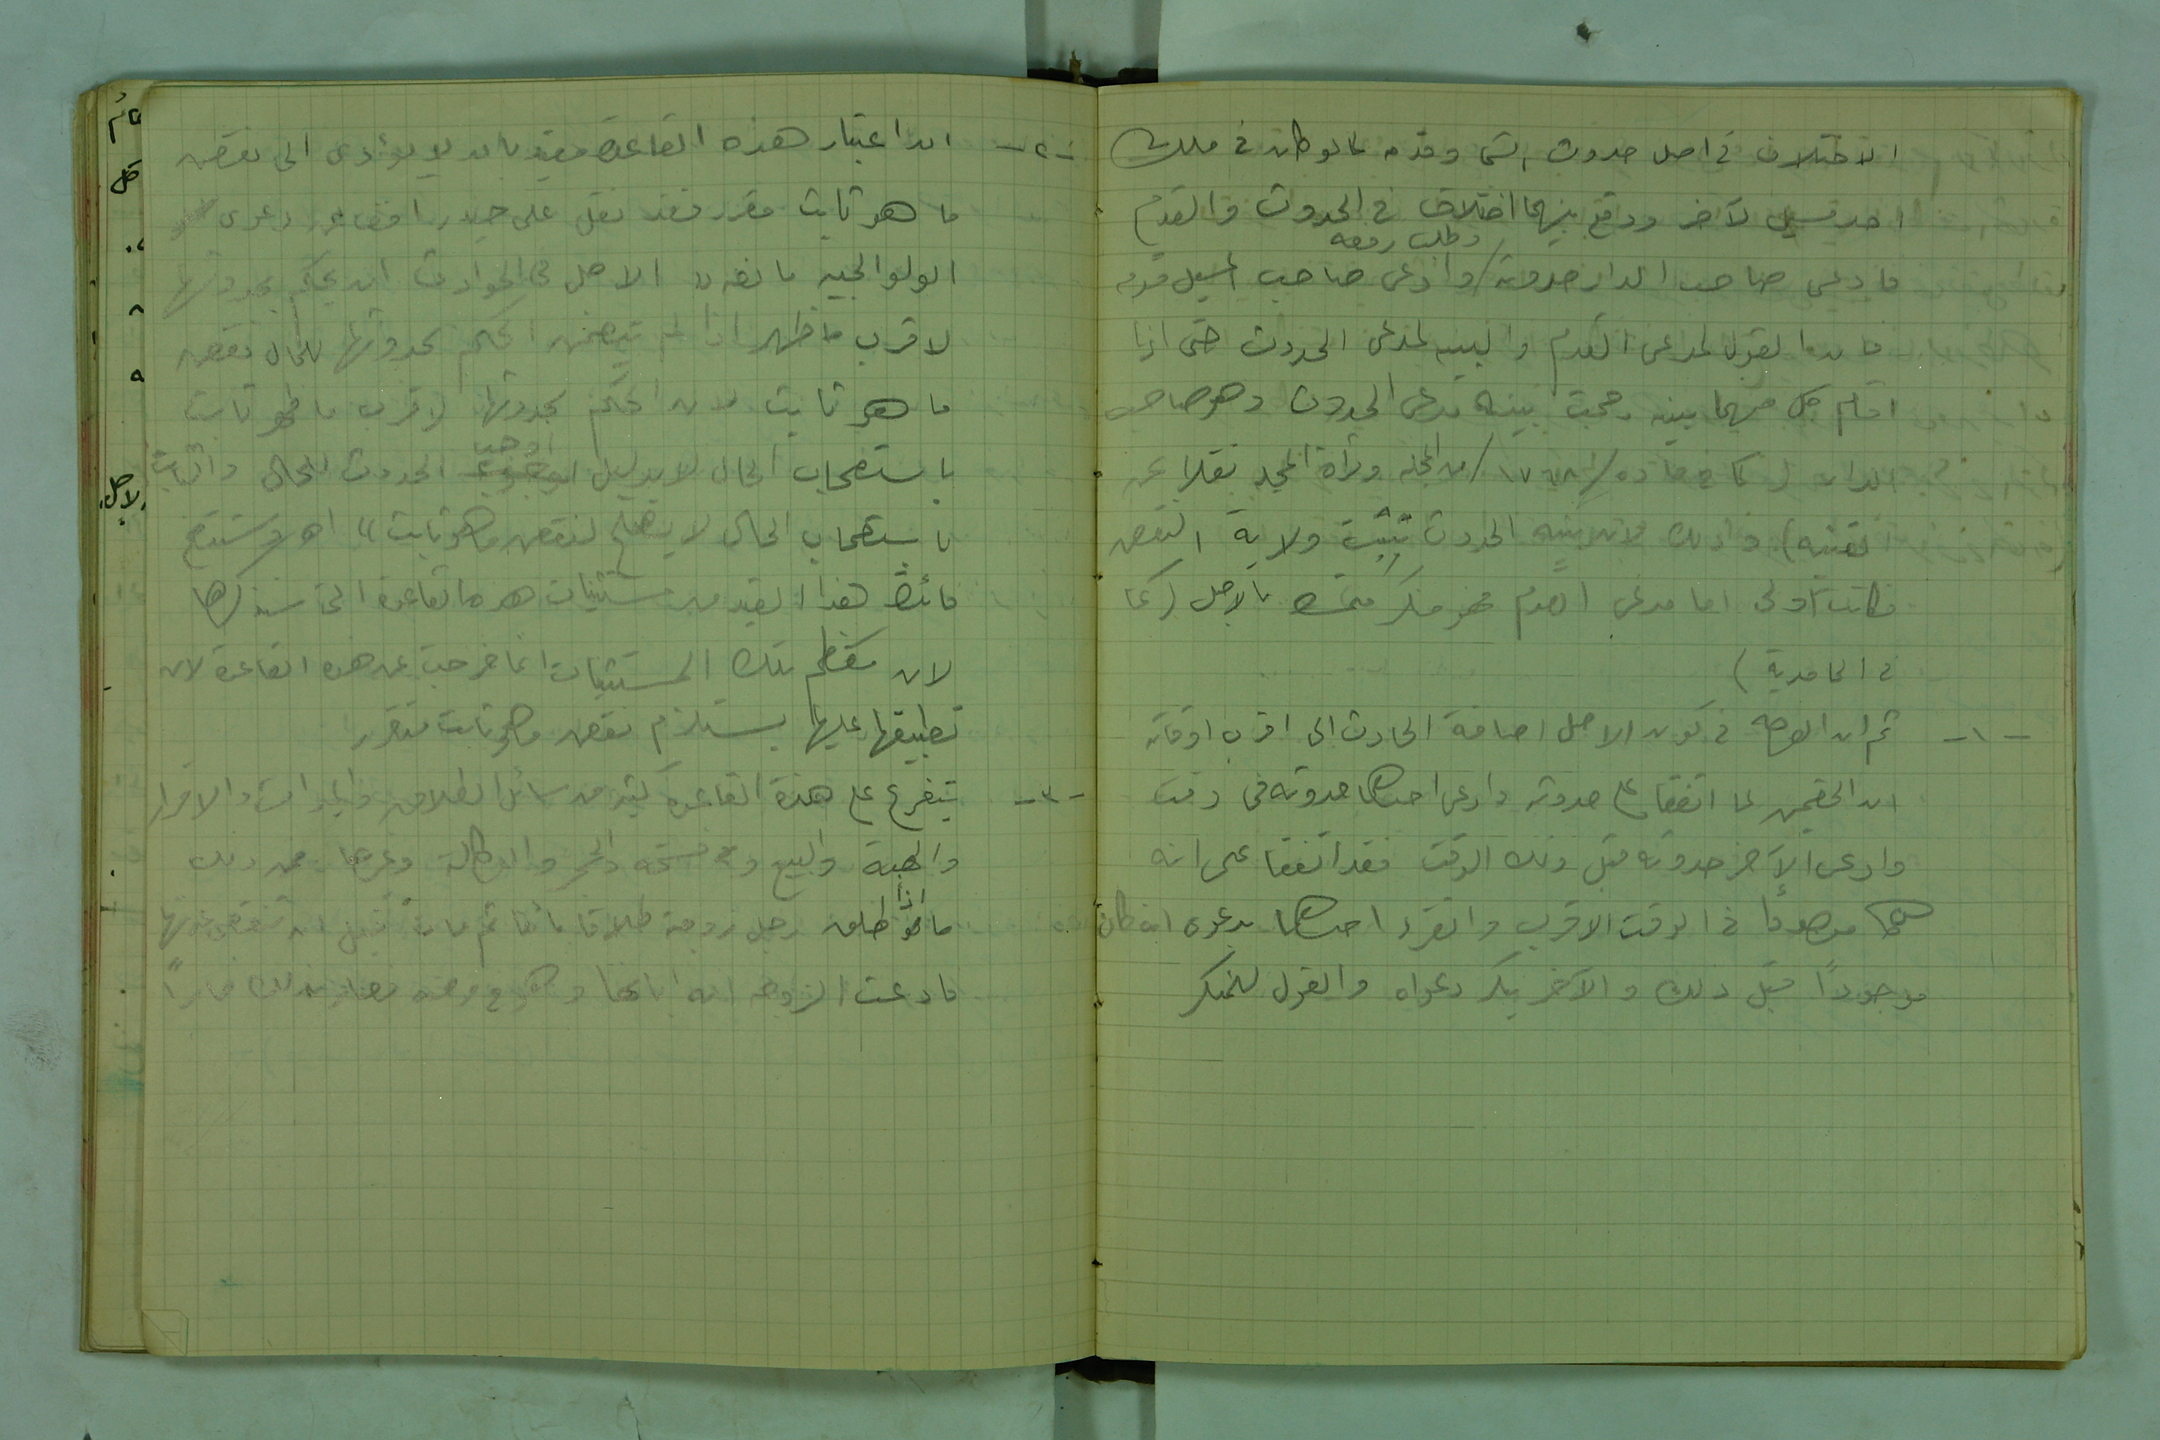 الاختلاف في اصل حدوث الشيء وقدمه كما لو كان في ملك
احد مسيل لآخر ووقع بينهما اختلاف في الحدوث والقدم
وطلب رفعه
فادعى صاحب الدار حدوثه / وادعى صاحب المسيل قدمه
فان القول لمدعي القدم والبينة لمدعي الحدوث حتى اذا
اقام كل منهما بينة رجحت بينة مدعي الحدوث وهو صاحب
الدار (كما في مادة /١٧٦٨/ من المجلة ومرآة المجلة نقلا عن
القنية) وذلك لان بينة الحدوث تثبت ولاية النقض
فكانت اولى اما مدعي القدم فهو منكر متمسك بالاصل (كما
في الحامدية)
-١- ثم ان الوجه في كون الاصل اضافة الحادث الى اقرب اوقاته
ان الخصمين لما اتفقا على حدوثه وادعى احدهما حدوثه في وقت
وادعى الآخر حدوثه قبل ذلك الوقت فقد اتفقا على انه
كان موجودًا في الوقت الاقرب وانفرد احدهما بدعوى انه كان
موجودًا قبل ذلك والآخر ينكر دعواه والقول للمنكر
-٢- ان اعتبار هذه القاعدة مقيد بان لا يؤدي الى نقض
ما هو ثابت مقرر فقد نقل علي حيدر افندي دعوى
الولوالجية ما نصه » الاصل في الحوادث ان يحكم بحدوثها
لاقرب ما ظهر اذا لم يتضمن الحكم بحدوثها للحال نقض
ما هو ثابت لان الحكم بحدوثها لاقرب ما ظهر ثابت
اوجب
باستصحاب الحال لا بدليل الحدوث للحال والثابت
باستصحاب الحال لا يصلح لنقض ما هو ثابت « اهـ
فائدة هذا القيد من مستثنيات هذه القاعدة التي سنذكرها
لان معظم تلك المستثنيات انما خرجت عن هذه القاعدة لان
تطبيقها عليها يستلزم نقض ما هو ثابت متقرر
-٣- يتفرع على هذه القاعدة كثير من مسائل الطلاق والميراث والاقرار
والهبة والبيع وفسخه والحجر والوكالة وغيرها فمن ذلك
اذا
ما طلق رجل زوجته طلاقا بائنا ثم مات قبل ان تنقضي عدتها
فادعت الزوجة انه ابانها وهو في مرضه فصار بذلك فارًّا